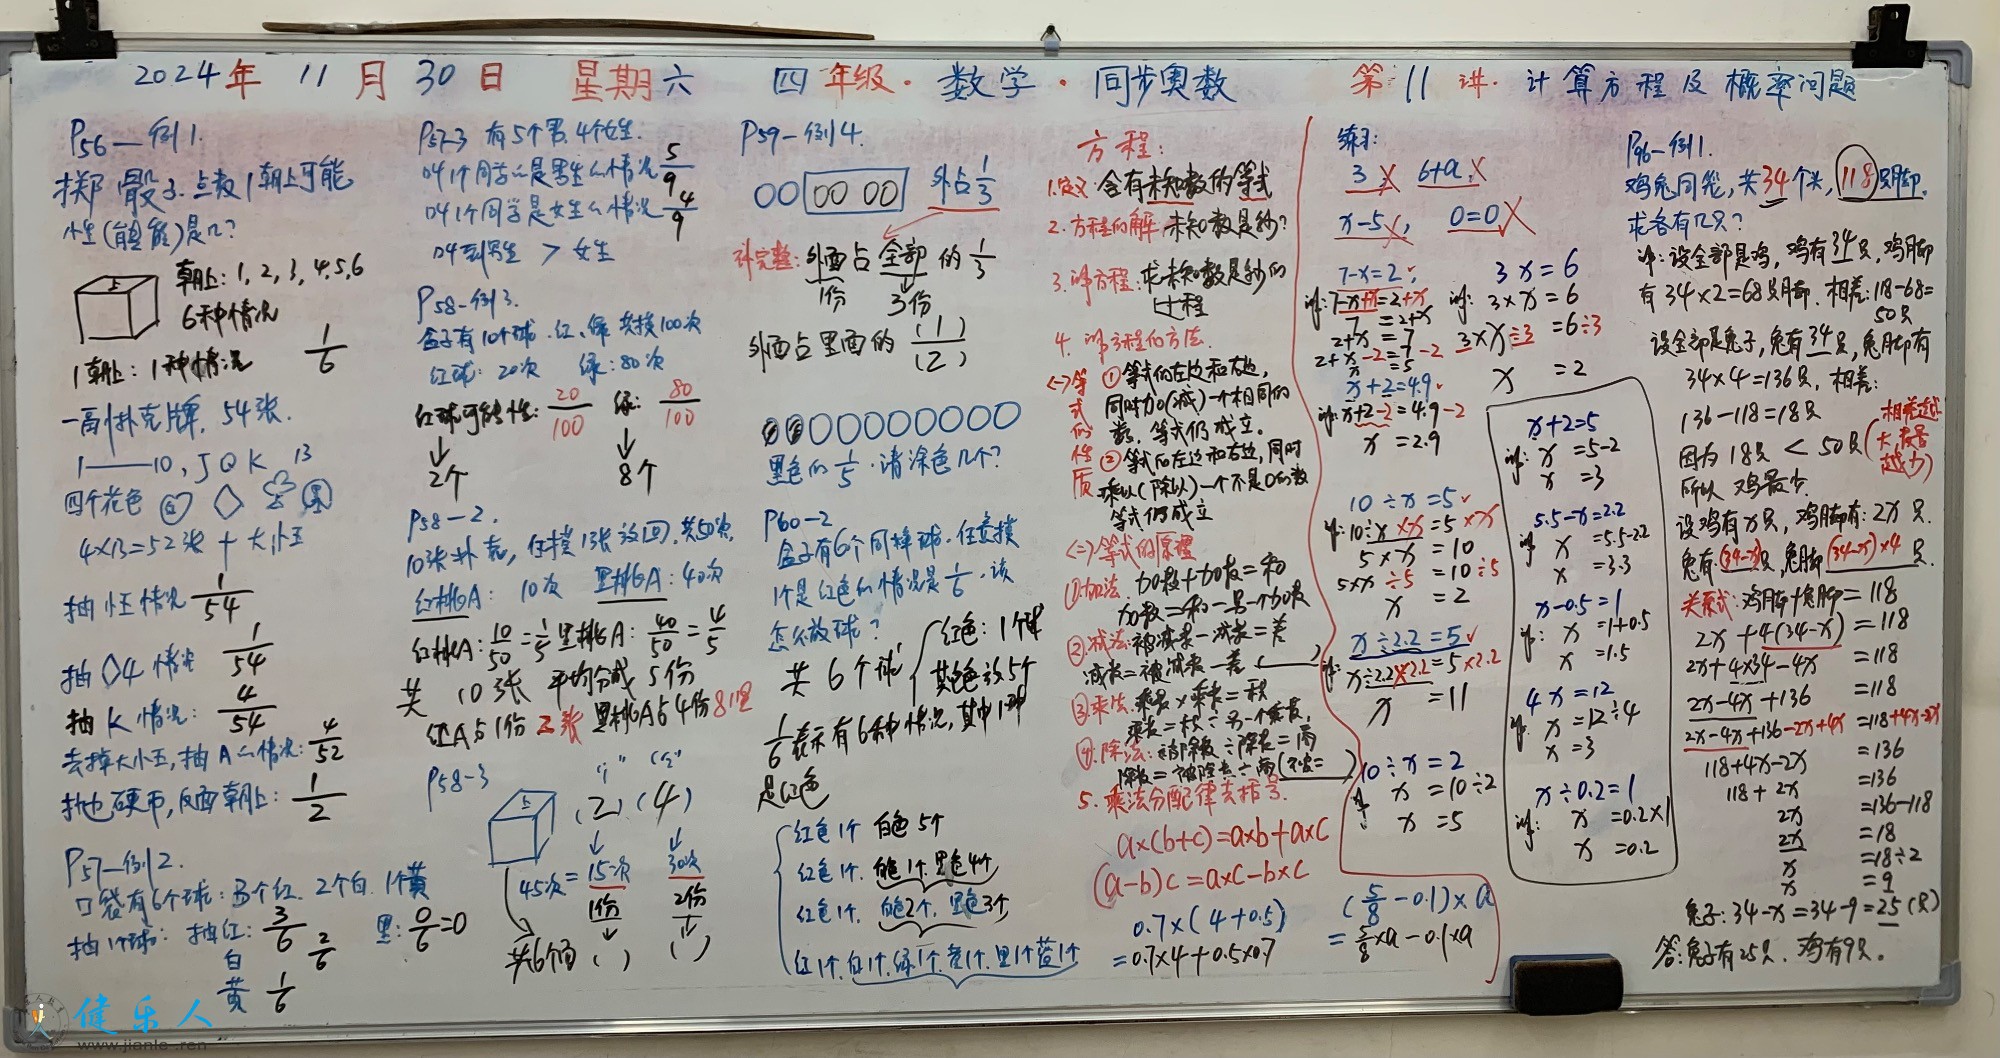 2024年 11月 30日 星期六 四年级·数学·同步奥数 第11讲·计算方程及概率问题
P56—例1.
掷骰子.点数1朝上可能
性(能)是几?
上
朝上:1,2,3,4,5,6
6种情况
1朝上:1种情况 1/6
一副扑克牌,54张.
1——10,J Q K 13
四个花色
4×13=52张+大小王
抽小王情况 1/54
抽◇4情况 1/54
抽K情况: 4/54
去掉大小王,抽A情况: 4/52
抛硬币,反面朝上: 1/2
P57—例2.
口袋有6个球:3个红.2个白.1个黄
抽1个球:抽红: 3/6 黑: 0/6=0
白 2/6
黄 1/6
P57-3 有5个男.4个女生.
叫1个同学是男生情况 5/9
叫1个同学是女生情况 4/9
叫到男生 > 女生
P58-例3.
盒子有10个球.红、绿共摸100次
红球:20次 绿:80次
红球可能性: 20/100 绿: 80/100
↓ ↓
2个 8个
P58-2.
10张扑克,任摸1张放回,共50次.
红桃A: 10次 黑桃A:40次
红桃A: 10/50=1/5 黑桃A: 40/50=4/5
共 10张 平均分成 5份
红A占1份2张 黑桃A占4份8张
P58-3
上
(2) (4)
↓ ↓
45次=15次 30次
1份 2份
↓ ↓
共6个面 ( ) ( )
P59-例4.
外占1/3
补完整:外面占全部的1/3
1份 3份
外面占里面的 (1)/(2)
黑色的1/5.请涂色几个?
P60-2
盒子有6个同样球.任意摸
1个是红色的情况是1/6.该
怎么放球?
共6个球
红色:1个球
其他色放5个
1/6表示有6种情况,其中1种
是红色
红色1个 白色5个
红色1个. 白色1个.黑色4个
红色1个. 白色2个.黑色3个
红1个.白1个.绿1个.黄1个.黑1个蓝1个
方程:
1.定义:含有未知数的等式
2.方程的解:未知数是多少?
3.解方程:求未知数是多少的
过程
4.解方程的方法.
<一>等式的性质
①等式的左边和右边,
同时加(减)一个相同的
数,等式仍成立.
②等式的左边和右边,同时
乘以(除以)一个不是0的数
等式仍成立
<二>等式的原理
①加法:加数+加数=和
加数=和-另一个加数
②减法:被减数-减数=差
减数=被减数-差(——)
③乘法:乘数×乘数=积
乘数=积÷另一个乘数
④除法:被除数÷除数=商
除数=被除数÷商
5.乘法分配律去括号.
a×(b+c)=a×b+a×c
(a-b)c=a×c-b×c
0.7×(4+0.5)
=0.7×4+0.5×0.7
练习:
3 × 6+a ×
x-5 ×, 0=0 ×
7-x=2✓
解:7-x+x=2+x
7=2+x
2+x=7
2+x-2=7-2
x=5
3x=6
解:3×x=6
3×x÷3=6÷3
x=2
x+2=4.9✓
解:x+2-2=4.9-2
x=2.9
10÷x=5✓
解:10÷x×x=5×x
5×x=10
5×x÷5=10÷5
x=2
x÷2.2=5✓
解:x÷2.2×2.2=5×2.2
x=11
10÷x=2
解 x=10÷2
x=5
x+2=5
解:x=5-2
x=3
5.5-x=2.2
解 x=5.5-2.2
x=3.3
x-0.5=1
解:x=1+0.5
x=1.5
4x=12
解.x=12÷4
x=3
x÷0.2=1
解:x=0.2×1
x=0.2
(5/8-0.1)×a
=5/8×a-0.1×a
P96-例1.
鸡兔同笼,共34个头,118只脚.
求各有几只?
解:设全部是鸡,鸡有34只,鸡脚
有34×2=68只脚.相差:118-68=
50只
设全部是兔子,兔有34只,兔脚有
34×4=136只,相差:
136-118=18只
因为18只<50只(相差越大,数量越少)
所以 鸡最少.
设鸡有x只,鸡脚有:2x只.
兔有:(34-x)只,兔脚(34-x)×4只.
关系式:鸡脚+兔脚=118
2x+4(34-x)=118
2x+4×34-4x=118
2x-4x+136=118
2x-4x+136-2x+4x=118+4x-2x
118+4x-2x=136
118+2x=136
2x=136-118
2x=18
x=18÷2
x=9
兔子:34-x=34-9=25(只)
答:兔子有25只.鸡有9只。
健乐人
www.jianle.ren